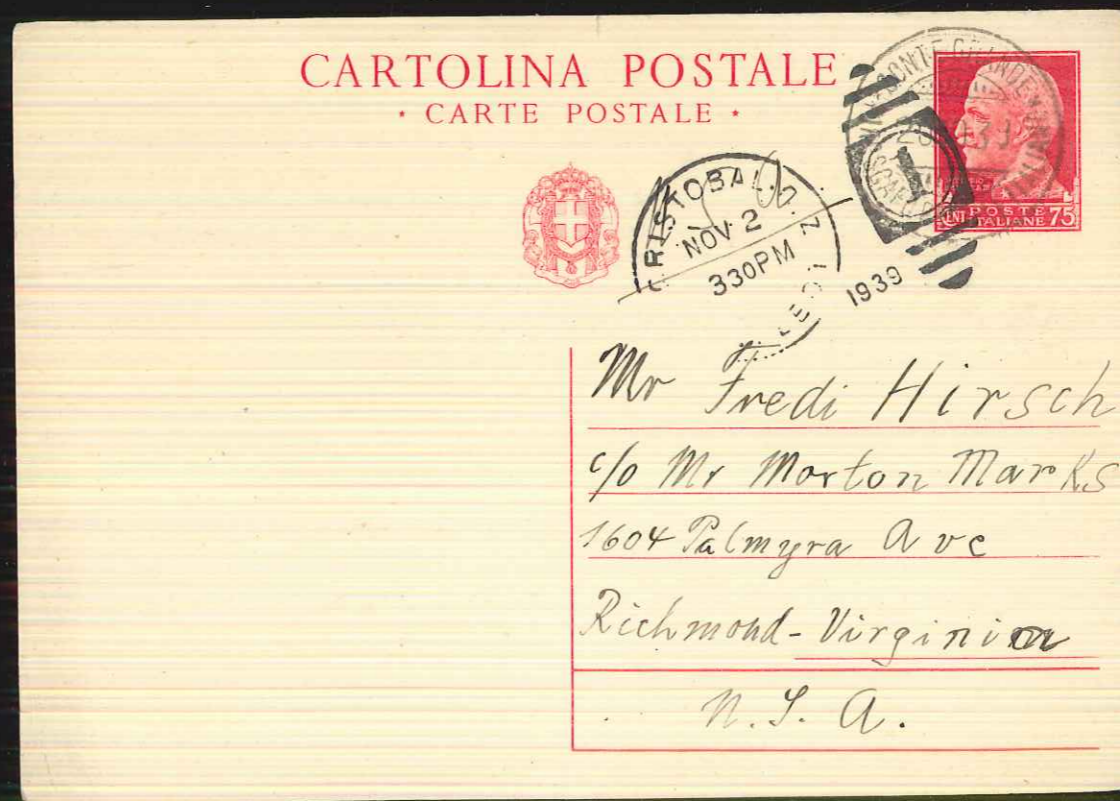 CARTOLINA POSTALE
· CARTE POSTALE ·
CRISTOBAL, C. Z.
NOV 2
330PM
1939
1
POSTE
ITALIANE 75
Mr Fredi Hirsch
c/o Mr Morton Marks
1604 Palmyra Ave
Richmond - Virginia
U.S.A.